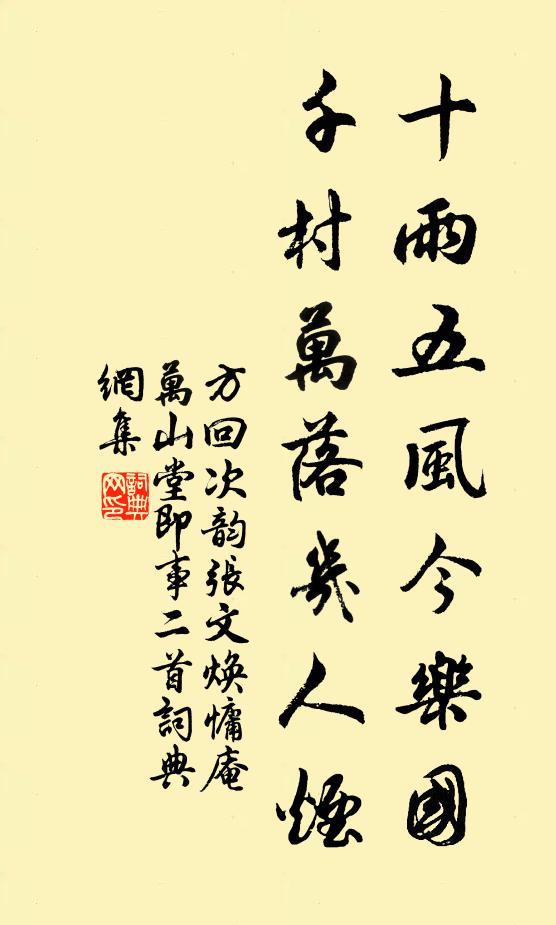 十雨五風今樂國
千村萬落幾人煙
方回次韵張文煥慵庵
萬山堂即事二首詞典
網集
詞典
网印